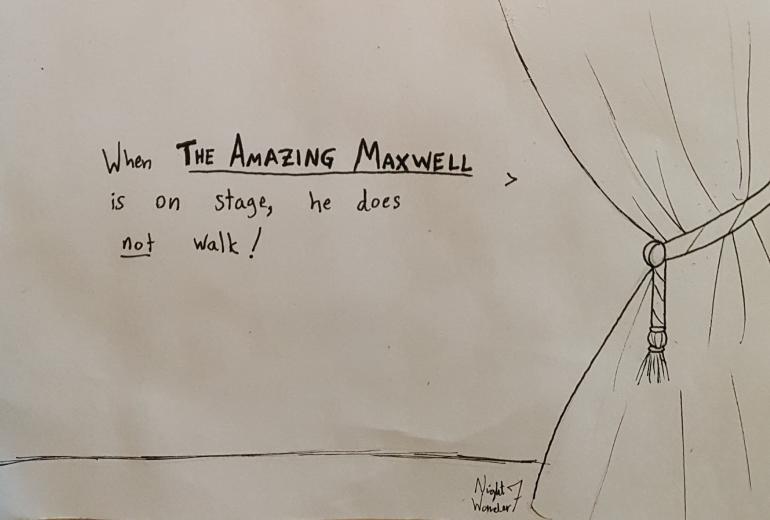 When THE AMAZING MAXWELL
is on stage, he does
not walk!
>
Night
Wander7